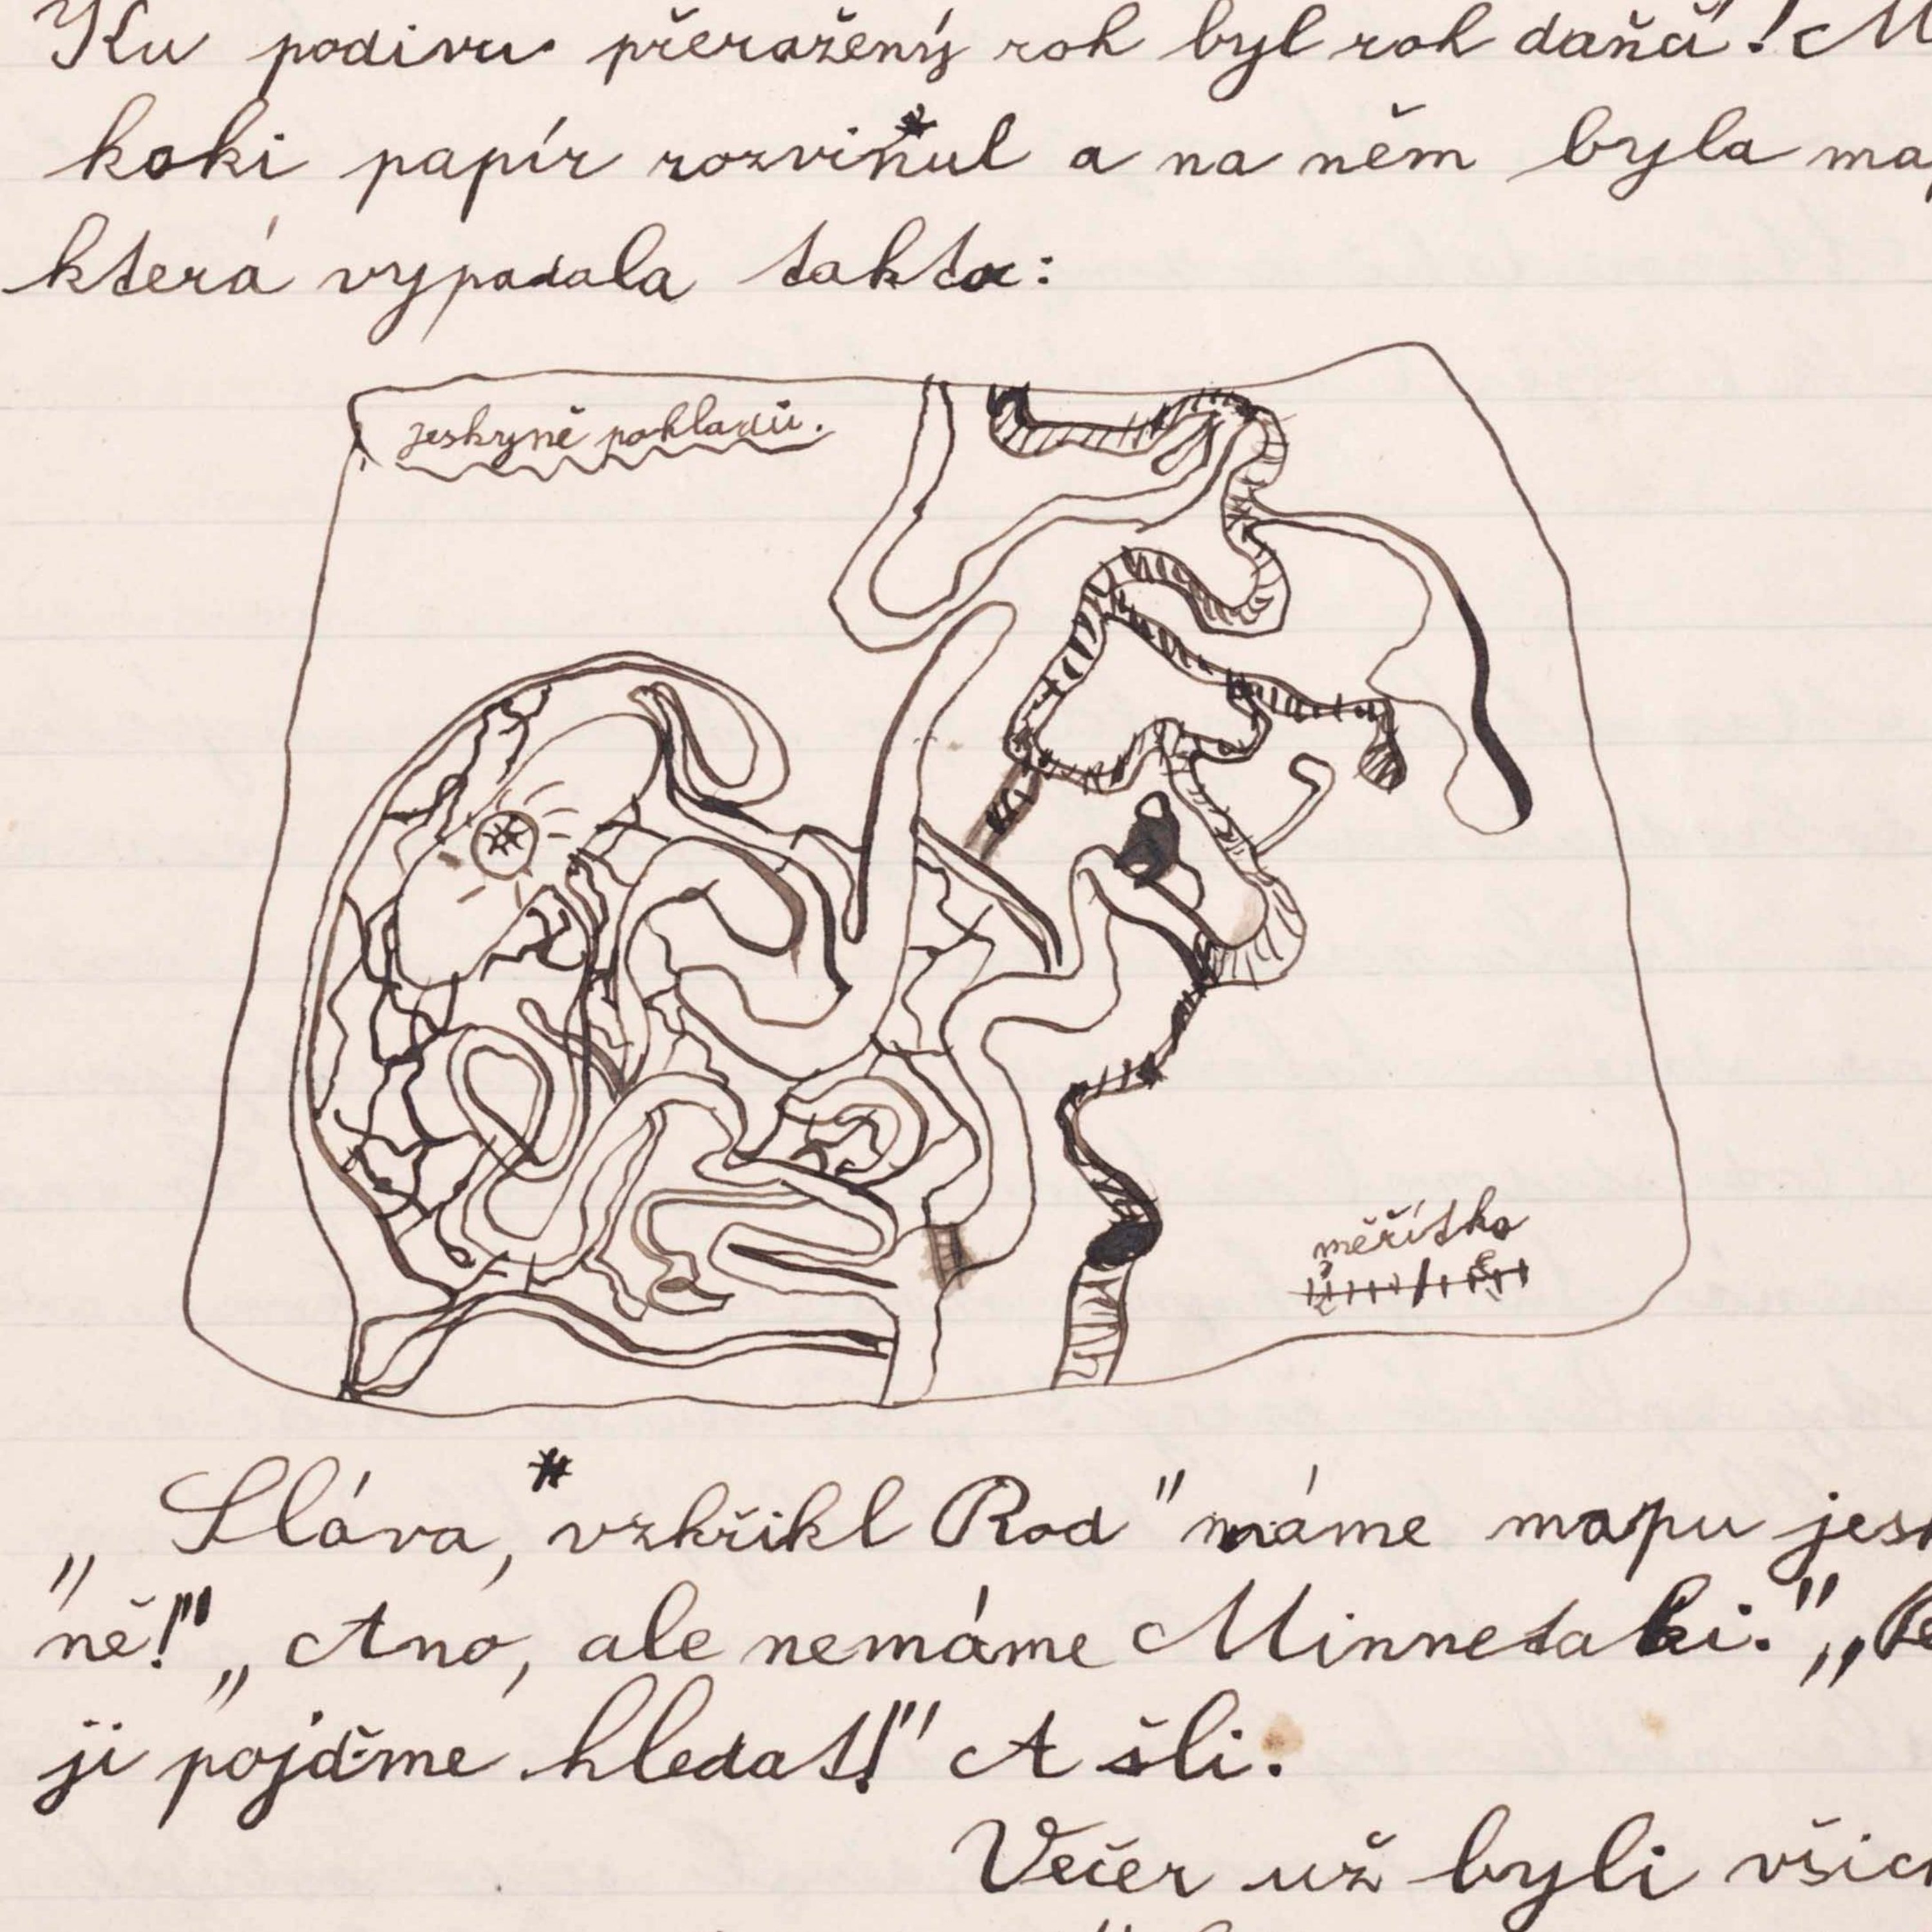 Ku podivu přeražený roh byl roh daňčí! M
koki papír rozvinul a na něm byla map
která vypadala takto:
jeskyně pokladů.
měřítko
„Sláva, vzkřikl Rod" máme mapu jesk
ně!" „Ano, ale nemáme Minnetaki." „
ji pojďme hledat!" A šli.
Večer už byli všich